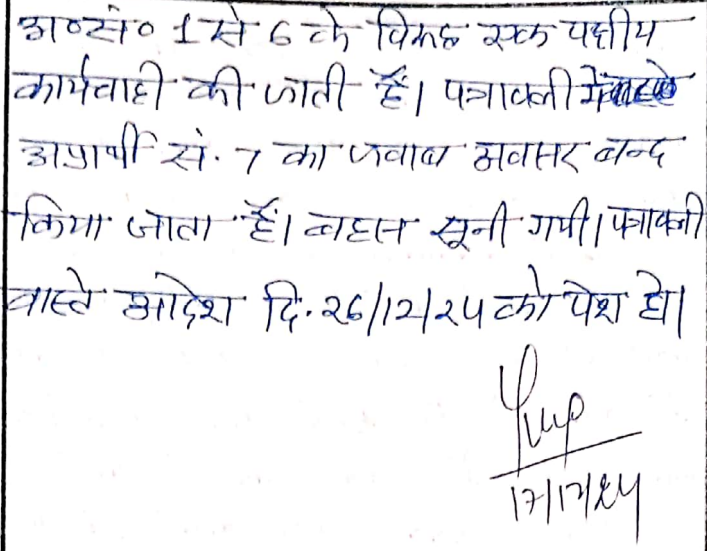 अ०सं० 1 से 6 के विरूद्ध एक पक्षीय
कार्यवाही की जाती हैं। पत्रावली में
अप्रार्थी सं. 7 का जवाब अवसर बन्द
किया जाता हैं। बहस सूनी गयी। पत्रावली
वास्ते आदेश दि. २6/12/२4 को पेश हो।
17/12/24